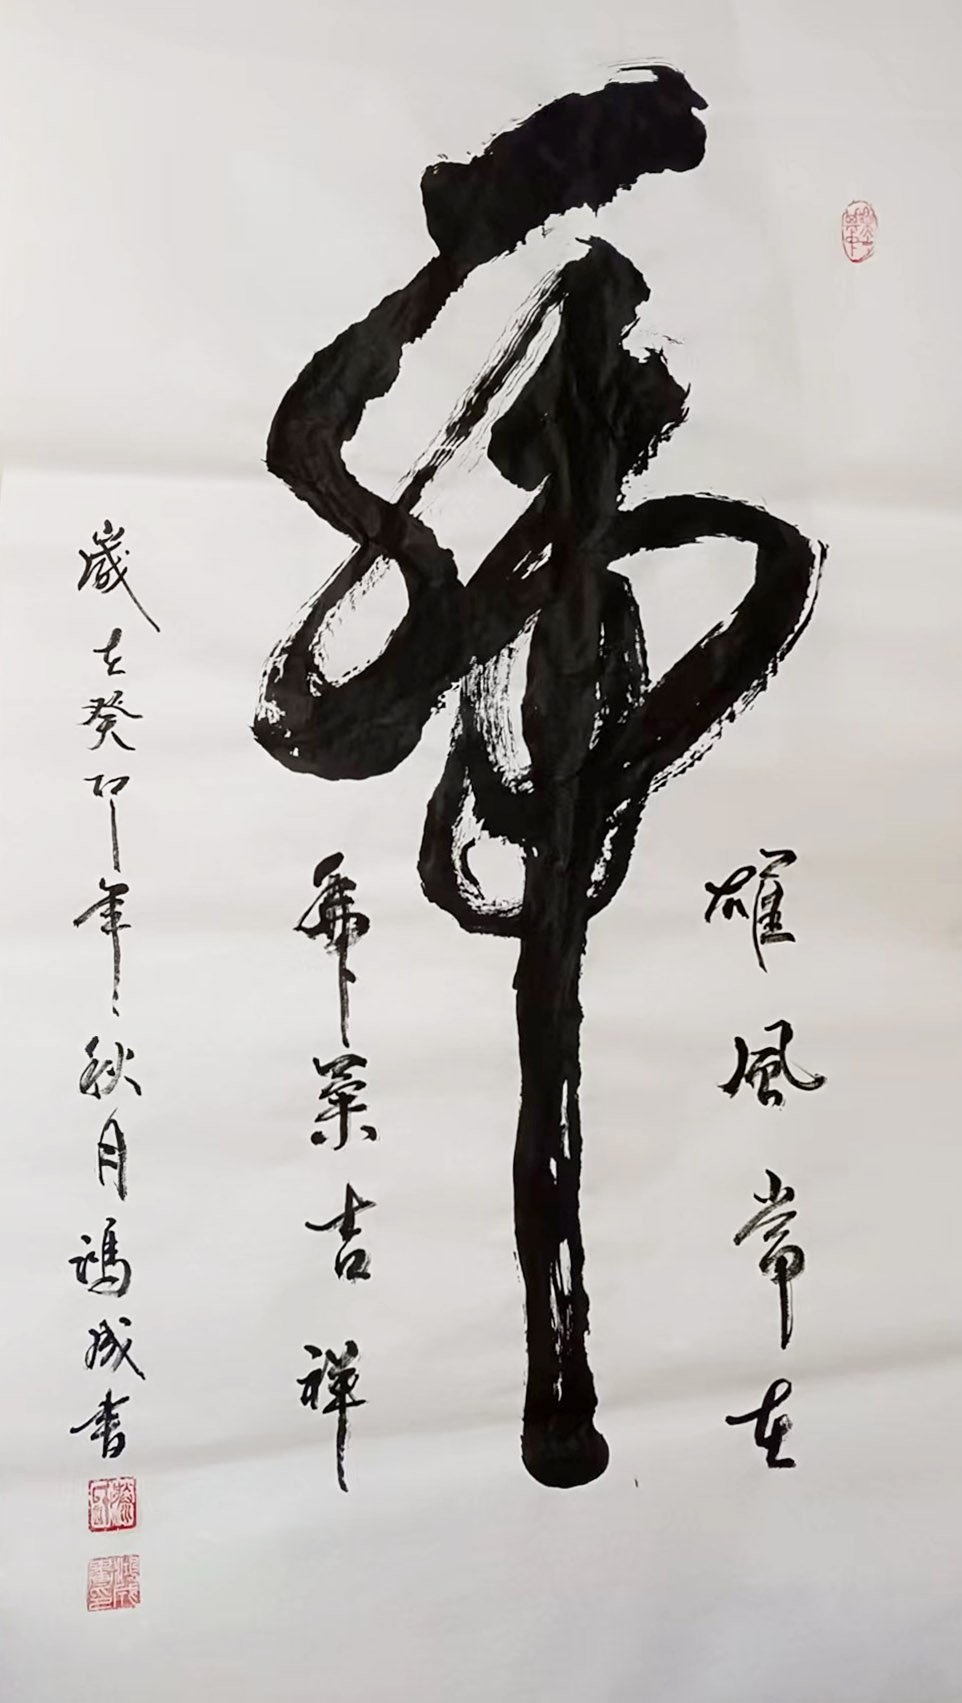 虎
雄風常在
虎業吉祥
歲在癸卯年秋月鴻成書